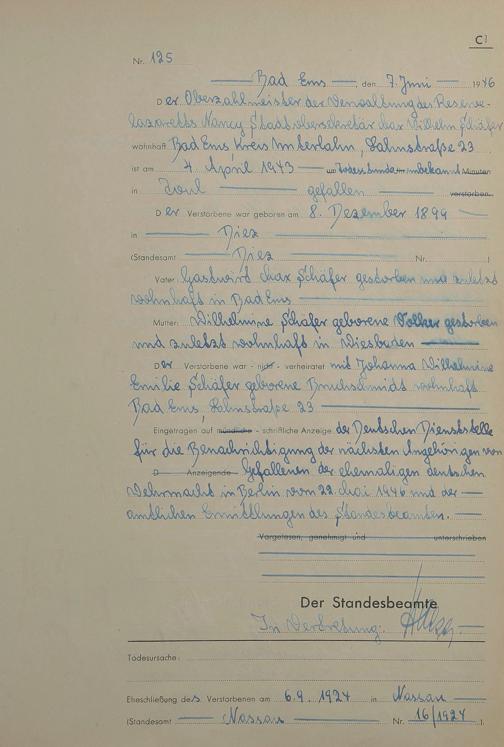 C
Nr. 125
Bad Ems, den 7. Juni 1946
Der Oberzahlmeister der Verwaltung des Reserve-
lazaretts Nancy Stadtobersekretär Max Wilhelm Schäfer
wohnhaft Bad Ems, Kreis Unterlahn, Lahnstraße 23
ist am 4. April 1943 um Todesstunde unbekannt Minuten
in Toul gefallen verstorben.
Der Verstorbene war geboren am 8. Dezember 1899
in Diez
(Standesamt Diez Nr. )
Vater: Gastwirt Max Schäfer gestorben und zuletzt
wohnhaft in Bad Ems
Mutter: Wilhelmine Schäfer geborene Volker gestorben
und zuletzt wohnhaft in Wiesbaden
Der Verstorbene war - nicht - verheiratet mit Johanna Wilhelmine
Emilie Schäfer geborene Bruchschmidt wohnhaft
Bad Ems, Lahnstraße 23
Eingetragen auf mündliche - schriftliche Anzeige der Deutschen Dienststelle
für die Benachrichtigung der nächsten Angehörigen von
D Anzeigende Gefallenen der ehemaligen deutschen
Wehrmacht in Berlin vom 22. Mai 1946 und der
amtlichen Ermittlungen des Standesbeamten.
Vorgelesen, genehmigt und unterschrieben
Der Standesbeamte
In Vertretung:
Todesursache:
Eheschließung des Verstorbenen am 6.9.1924 in Nassau
(Standesamt Nassau Nr. 16/1924 ).